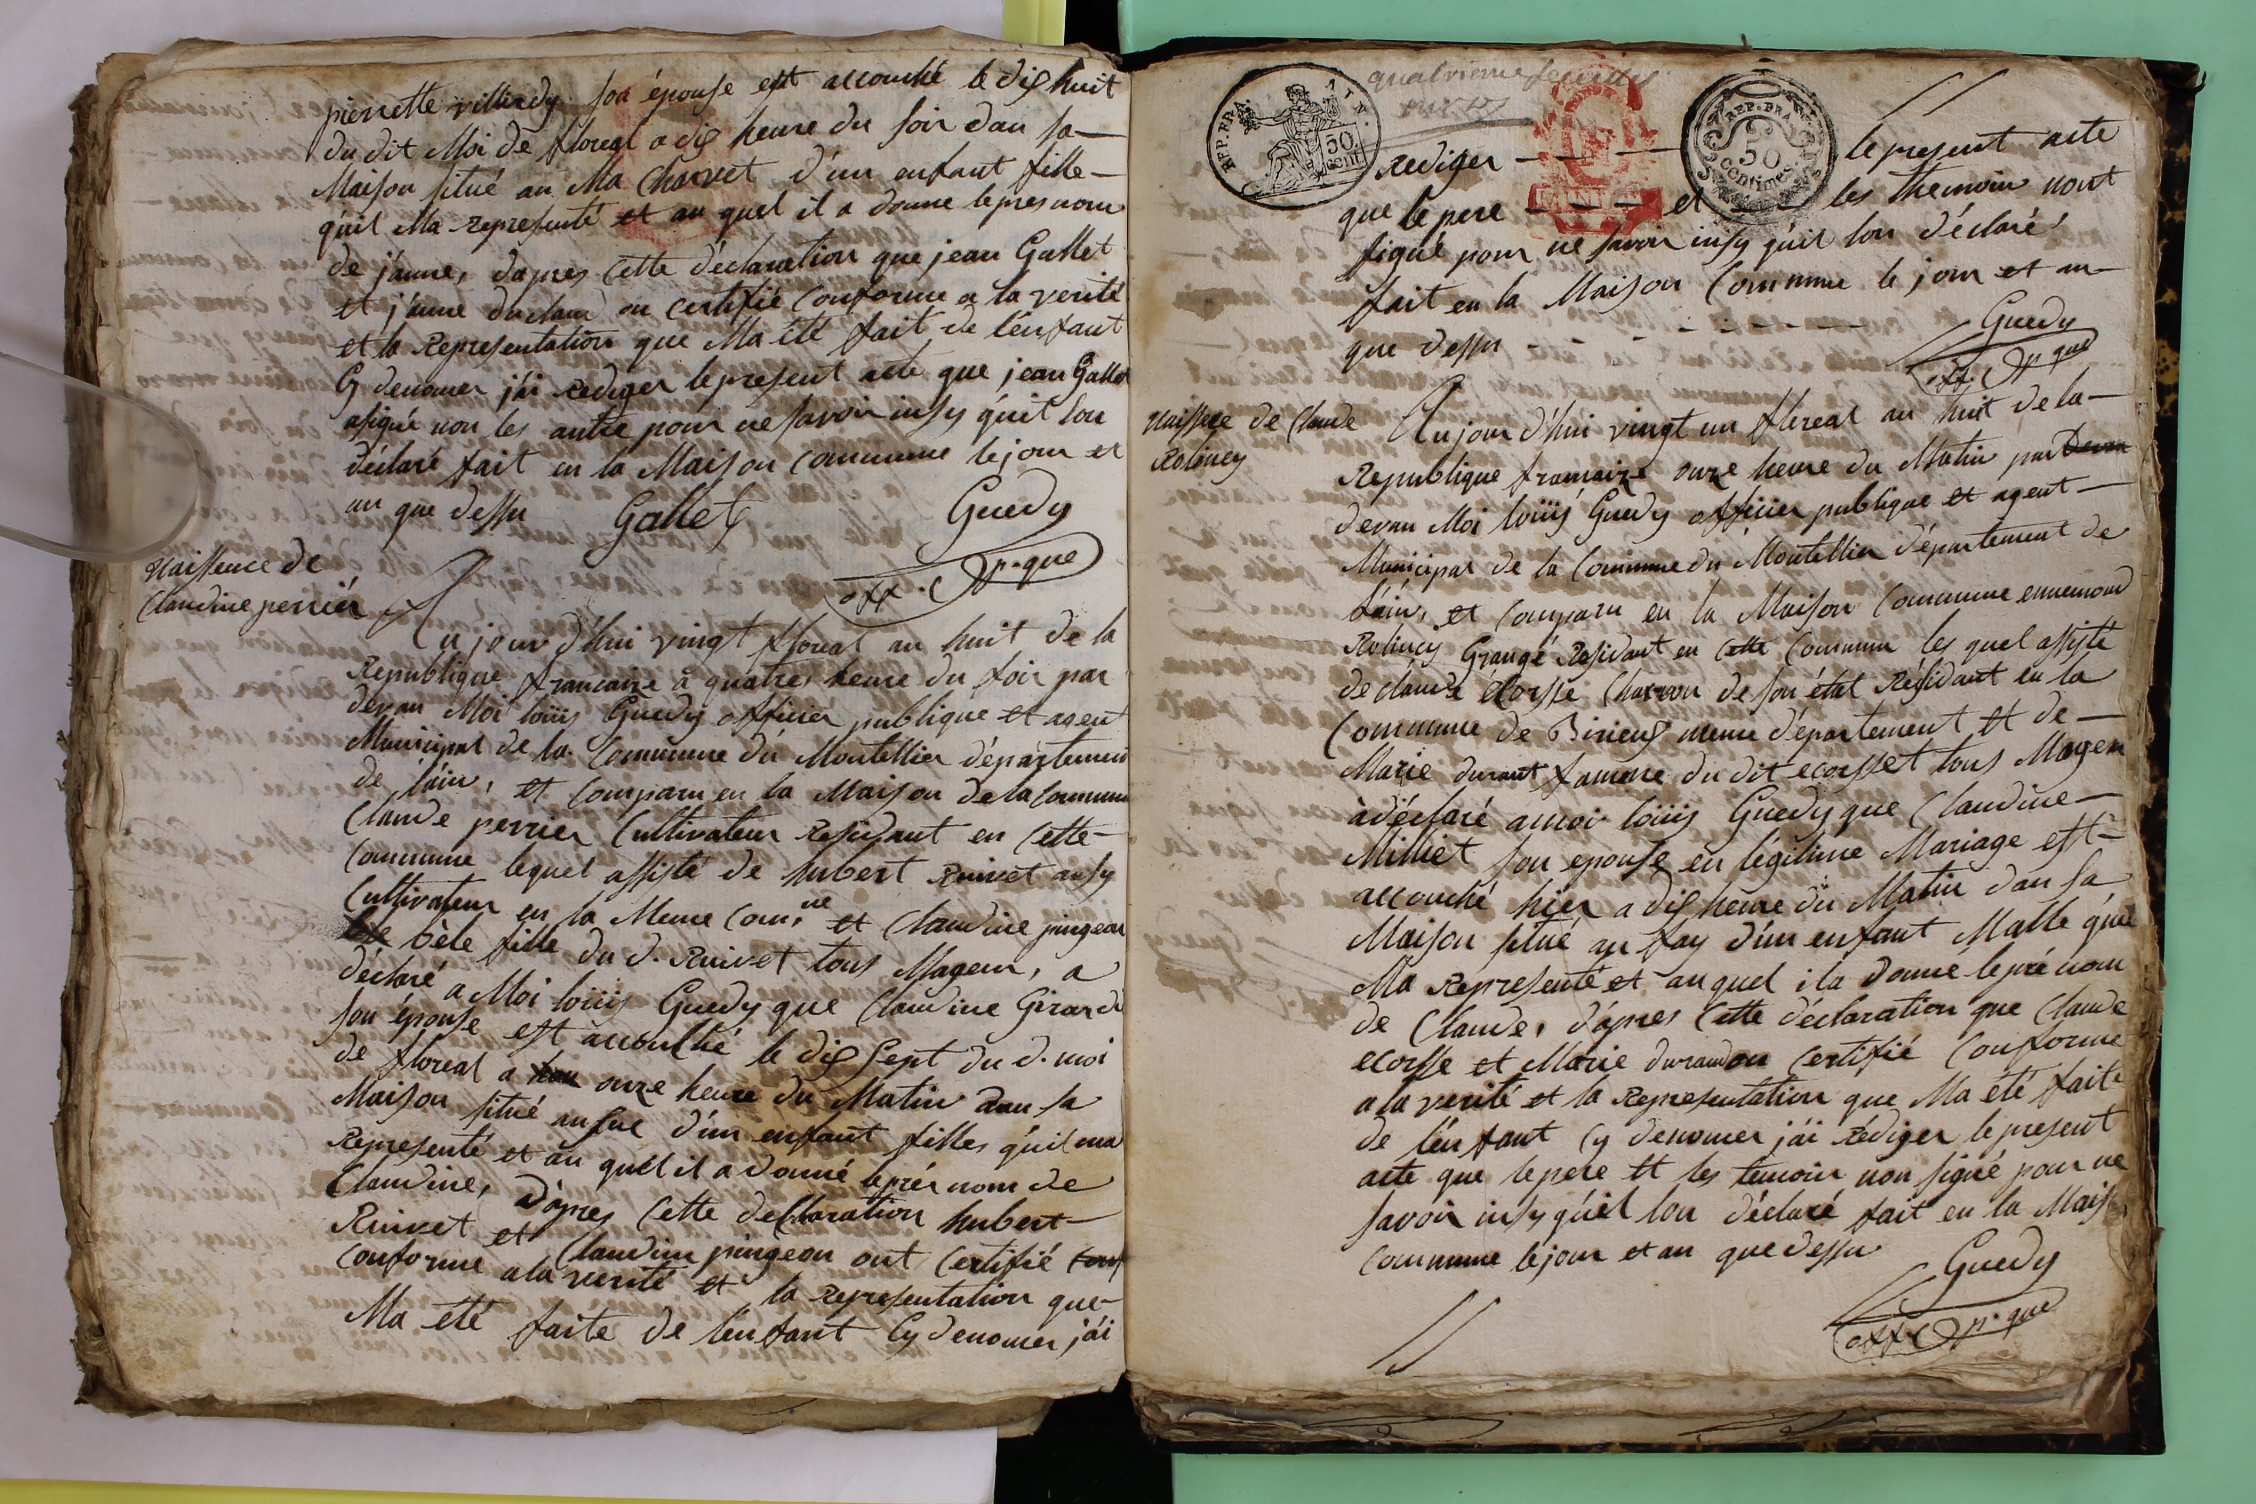 pierrette villiedy son épouse est accouché le dix huit
du dit Moi de floreal a dix heure du soir dan sa
Maison situé au Ma Charvet d'un enfant fille
qu'il Ma representé et au quel il a donne le presnom
de j'anne, dapres Cette déclaration que jean Gallet
et j'anne duclam on certifié Conforme a la verité
et la Representation que Ma été fait de l'enfant
Cy denomer j'ai rediger le present acte que jean Gallet
asigné non les autre pour ne savoir insy quil lon
déclaré fait en la Maison commune le jour et
an que dessu Gallet Guedy
off. p.que
Naissence de
Claudine perrier
Au jour d'hui vingt floreal an huit de la
Republique francaire a quatre heure du soir par
devan Moi loüis Guedy officier publique et agent
Municipal de la Commune du Montellier département
de l'ain, et Comparu en la Maison de la Commune
Claude perrier Cultivateur Residant en Cette
Commune lequel assisté de hubert Ruivet ausy
Cultivateur en la Meme Com.ne et Claudine pingeon
bèle fille du d. Ruivet tous Mageur, a
déclaré a Moi loüis Guedy que Claudine Girard
son épouse est accouché le dix sept du d. moi
de floreal a onze heure du Matin dan sa
Maison situé au d'un enfant filles qu'il ma
Representé et au quel il a donné le prér nom de
Claudine, D'apres Cette declaration hubert
Ruivet et Claudine pingeon ont Certifié
Conforme a la verité et la Representation que
Ma été faite de l'enfant Cy denomer j'ai
quatrieme feuillet
REP. FRA. AIN.
50 cent.
REP. FRA.
50
centimes
rediger - - - le present acte
que le pere - - - et - - les themoin nont
signé pour ne savoir insy quil lon déclaré
fait en la Maison Commune le jour et an
que dessu - - - - - - Guedy
off. p.que
Naissce de Claude
Roliney
Au jour d'hui vingt un floreal an huit de la
Republique francaize onze heure du Matin par Devan
dévan Moi loüis Guedy officier publique et agent
Municipal de la Commune du Montellier département de
l'ain, et Comparu en la Maison Commune ennemond
Roliney Grangé Residant en Cette Commune les quel assisté
de claude écorsse Charron de son état Résidant en la
Commune de Birieux meme département et de
Marie durant famme du dit ecorsset tous Mageur
à déclaré a moi loüis Guedy que Claudine
Milliet son epouse en légitime Mariage est
accouché hier a dix heure du Matin dan sa
Maison situé au fay d'un enfant Malle quil
Ma représenté et au quel i la donné le pré nom
de Claude, d'apres Cette déclaration que Claude
ecorsse et Marie durand on Certifié Conforme
a la verité et la Representation que Ma été faite
de l'enfant Cy denomer j'ai rédiger le present
acte que le pere et les temoin non signé pour ne
savoir insy quil lon déclaré fait en la Mais.
Commune le jour et an que dessu Guedy
off. p.que